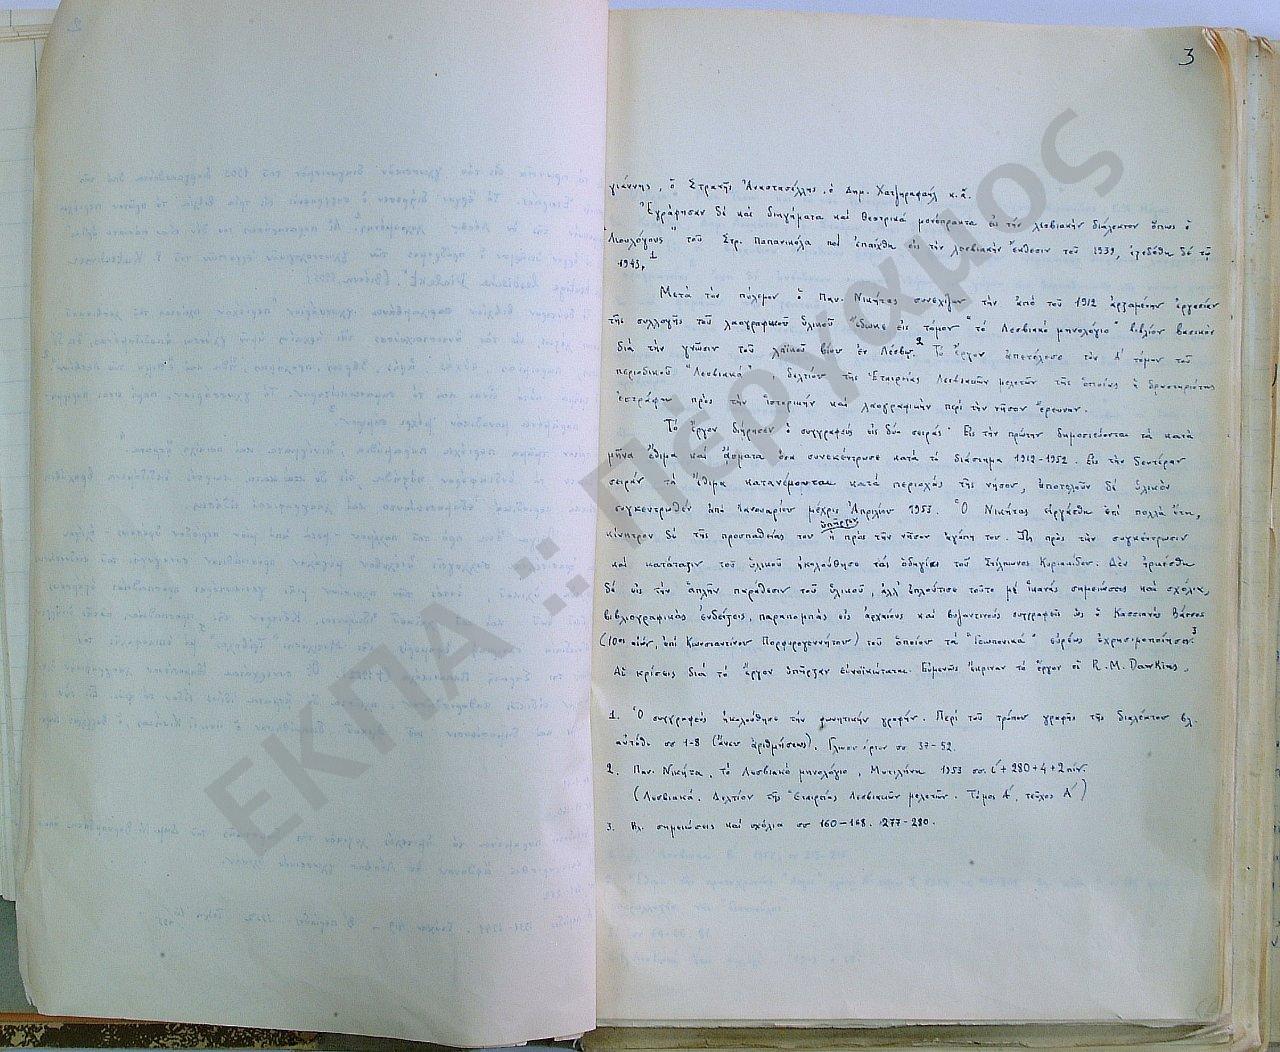 3
γιάννης, ὁ Στρατῆς Ἀναστασέλλης, ὁ Δημ. Χατζηραφαήλ κ.ἄ.
Ἐγράφησαν δὲ καὶ διηγήματα καὶ θεατρικὰ μονόπρακτα εἰς τὴν λεσβιακὴν διάλεκτον ὅπως ὁ
τοῦ Στρ. Παπανικόλα ποὺ ἐπαίχθη εἰς τὴν λεσβιακὴν ἔκθεσιν τοῦ 1939, ἐξεδόθη δὲ τῷ
1943.1
Μετὰ τὸν πόλεμον ὁ Παν. Νικήτας συνεχίζων τὴν ἀπὸ τοῦ 1912 ἀρξαμένην ἐργασίαν
τῆς συλλογῆς τοῦ λαογραφικοῦ ὑλικοῦ ἔδωκε εἰς τόμον "τὸ Λεσβιακὸ μηνολόγιο" βιβλίον βασικὸν
διὰ τὴν γνῶσιν τοῦ λαϊκοῦ βίου ἐν Λέσβῳ.2 Τὸ ἔργον ἀπετέλεσε τὸν Α' τόμον τοῦ
περιοδικοῦ "Λεσβιακά" δελτίον τῆς Ἑταιρείας Λεσβιακῶν μελετῶν τῆς ὁποίας ἡ δραστηριότης
ἐστράφη πρὸς τὴν ἱστορικὴν καὶ λαογραφικὴν περὶ τὴν νῆσον ἔρευναν.
Τὸ ἔργον διῄρεσεν ὁ συγγραφεὺς εἰς δύο σειράς· Εἰς τὴν πρώτην δημοσιεύονται τὰ κατὰ
μῆνα ἔθιμα καὶ ᾄσματα ὅσα συνεκέντρωσε κατὰ τὸ διάστημα 1912-1952. Εἰς τὴν δευτέραν
σειρὰν τὰ ἔθιμα κατανέμονται κατὰ περιοχὰς τῆς νήσου, ἀποτελοῦν δὲ ὑλικὸν
συγκεντρωθὲν ἀπὸ Ἰανουαρίου μέχρις Ἀπριλίου 1953. Ὁ Νικήτας εἰργάσθη ἐπὶ πολλὰ ἔτη,
κίνητρον δὲ τῆς προσπαθείας του ὑπῆρξεν ἡ πρὸς τὴν νῆσον ἀγάπη του. Ὡς πρὸς τὴν συγκέντρωσιν
καὶ κατάταξιν τοῦ ὑλικοῦ ἠκολούθησε τὰς ὁδηγίας τοῦ Στίλπωνος Κυριακίδου. Δὲν ἠρκέσθη
δὲ εἰς τὴν ἁπλῆν παράθεσιν τοῦ ὑλικοῦ, ἀλλ' ἐπλούτισε τοῦτο μὲ ἱκανὰς σημειώσεις καὶ σχόλια,
βιβλιογραφικὰς ἐνδείξεις, παραπομπὰς εἰς ἀρχαίους καὶ βυζαντινοὺς συγγραφεῖς ὡς ὁ Κασσιανὸς Βάσσος
(10ος αἰών, ἐπὶ Κωνσταντίνου Πορφυρογεννήτου) τοῦ ὁποίου τὰ "Γεωπονικά" εὐρέως ἐχρησιμοποίησεν.3
Αἱ κρίσεις διὰ τὸ ἔργον ὑπῆρξαν εὐνοϊκώταται. Εὐμενῶς ἔκριναν τὸ ἔργον οἱ R.M. Dawkins,
1. Ὁ συγγραφεὺς ἠκολούθησε τὴν φωνητικὴν γραφήν. Περὶ τοῦ τρόπου γραφῆς τῆς διαλέκτου βλ.
αὐτόθι σσ 1-8 (ἄνευ ἀριθμήσεως). Γλωσσάριον σσ 37-52.
2. Παν. Νικήτα, τὸ Λεσβιακὸ μηνολόγιο, Μυτιλήνη 1953 σσ. ι΄+280+4+2πίν.
(Λεσβιακά. Δελτίον τῆς Ἑταιρείας Λεσβιακῶν μελετῶν. Τόμος Α΄, τεῦχος Α΄)
3. Βλ. σημειώσεις καὶ σχόλια σσ 160-168. 277-280.
ΕΚΠΑ :: Πέργαμος